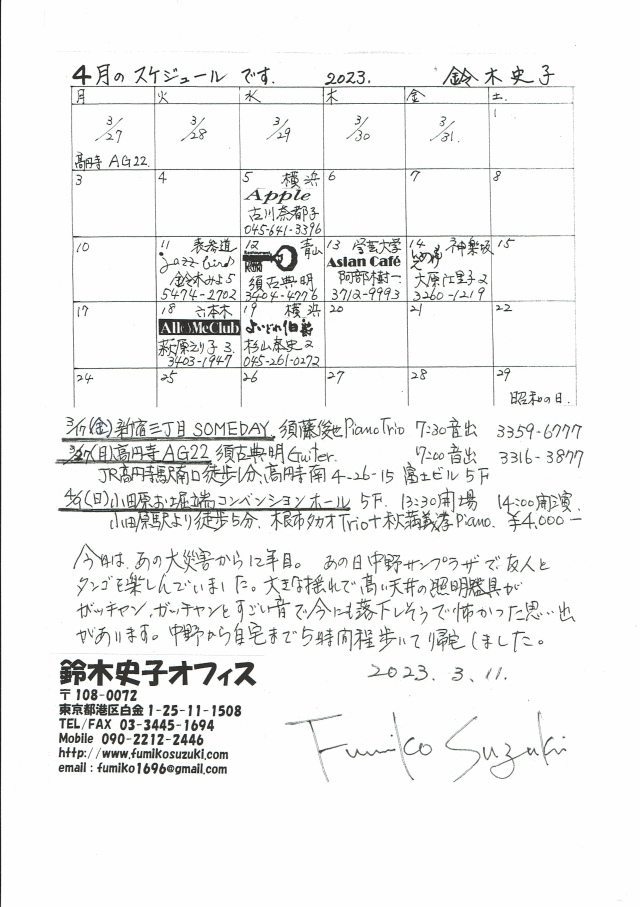 4月のスケジュール です. 2023. 鈴木史子
月 火 水 木 金 土.
3/27 3/28 3/29 3/30 3/31. 1
高円寺 AG22.
3 4 5 横浜 6 7 8
Apple
古川奈都子
045-641-3396
10 11 表参道 12 青山 13 学芸大学 14 神楽坂 15
jazz bird Asian Café
鈴木みよ5 須古典明 阿部樹一 大原江里子2
5474-2702 3404-4776 3712-9993 3260-1219
17 18 六本木 19 横浜 20 21 22
All of Me Club よいどれ伯爵
萩原えり子3. 杉山泰史2
3403-1947 045-261-0272
24 25 26 27 28 29
昭和の日.
3/17(金)新宿三丁目 SOMEDAY. 須藤俊也 Piano Trio 7:30音出 3359-6777
3/27(月)高円寺 AG22 須古典明 Guiter. 7:00音出 3316-3877
JR高円寺駅南口徒歩1分、高円寺南4-26-15 富士ビル5F
(日)小田原お堀端コンベンションホール 5F. 13:30開場 14:00開演.
小田原駅より徒歩5分. 根市タカオTrio+秋満義孝Piano. ¥4,000-
今日は、あの大災害から12年目。 あの日中野サンプラザで、友人と
タンゴを楽しんでいました。大きな揺れで高い天井の照明器具が
ガッチャン、ガッチャンとすごい音で今にも落下しそうで怖かった思い出
があります。中野から自宅まで5時間程歩いて帰宅しました。
2023. 3. 11.
鈴木史子オフィス
〒108-0072
東京都港区白金 1-25-11-1508
TEL/FAX 03-3445-1694
Mobile 090-2212-2446
http://www.fumikosuzuki.com
email : fumiko1696@gmail.com
Fumiko Suzuki